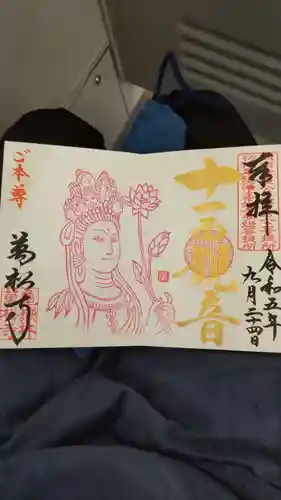 奉拝
令和五年
九月二十四日
十一面観音
ご本尊
萬松寺